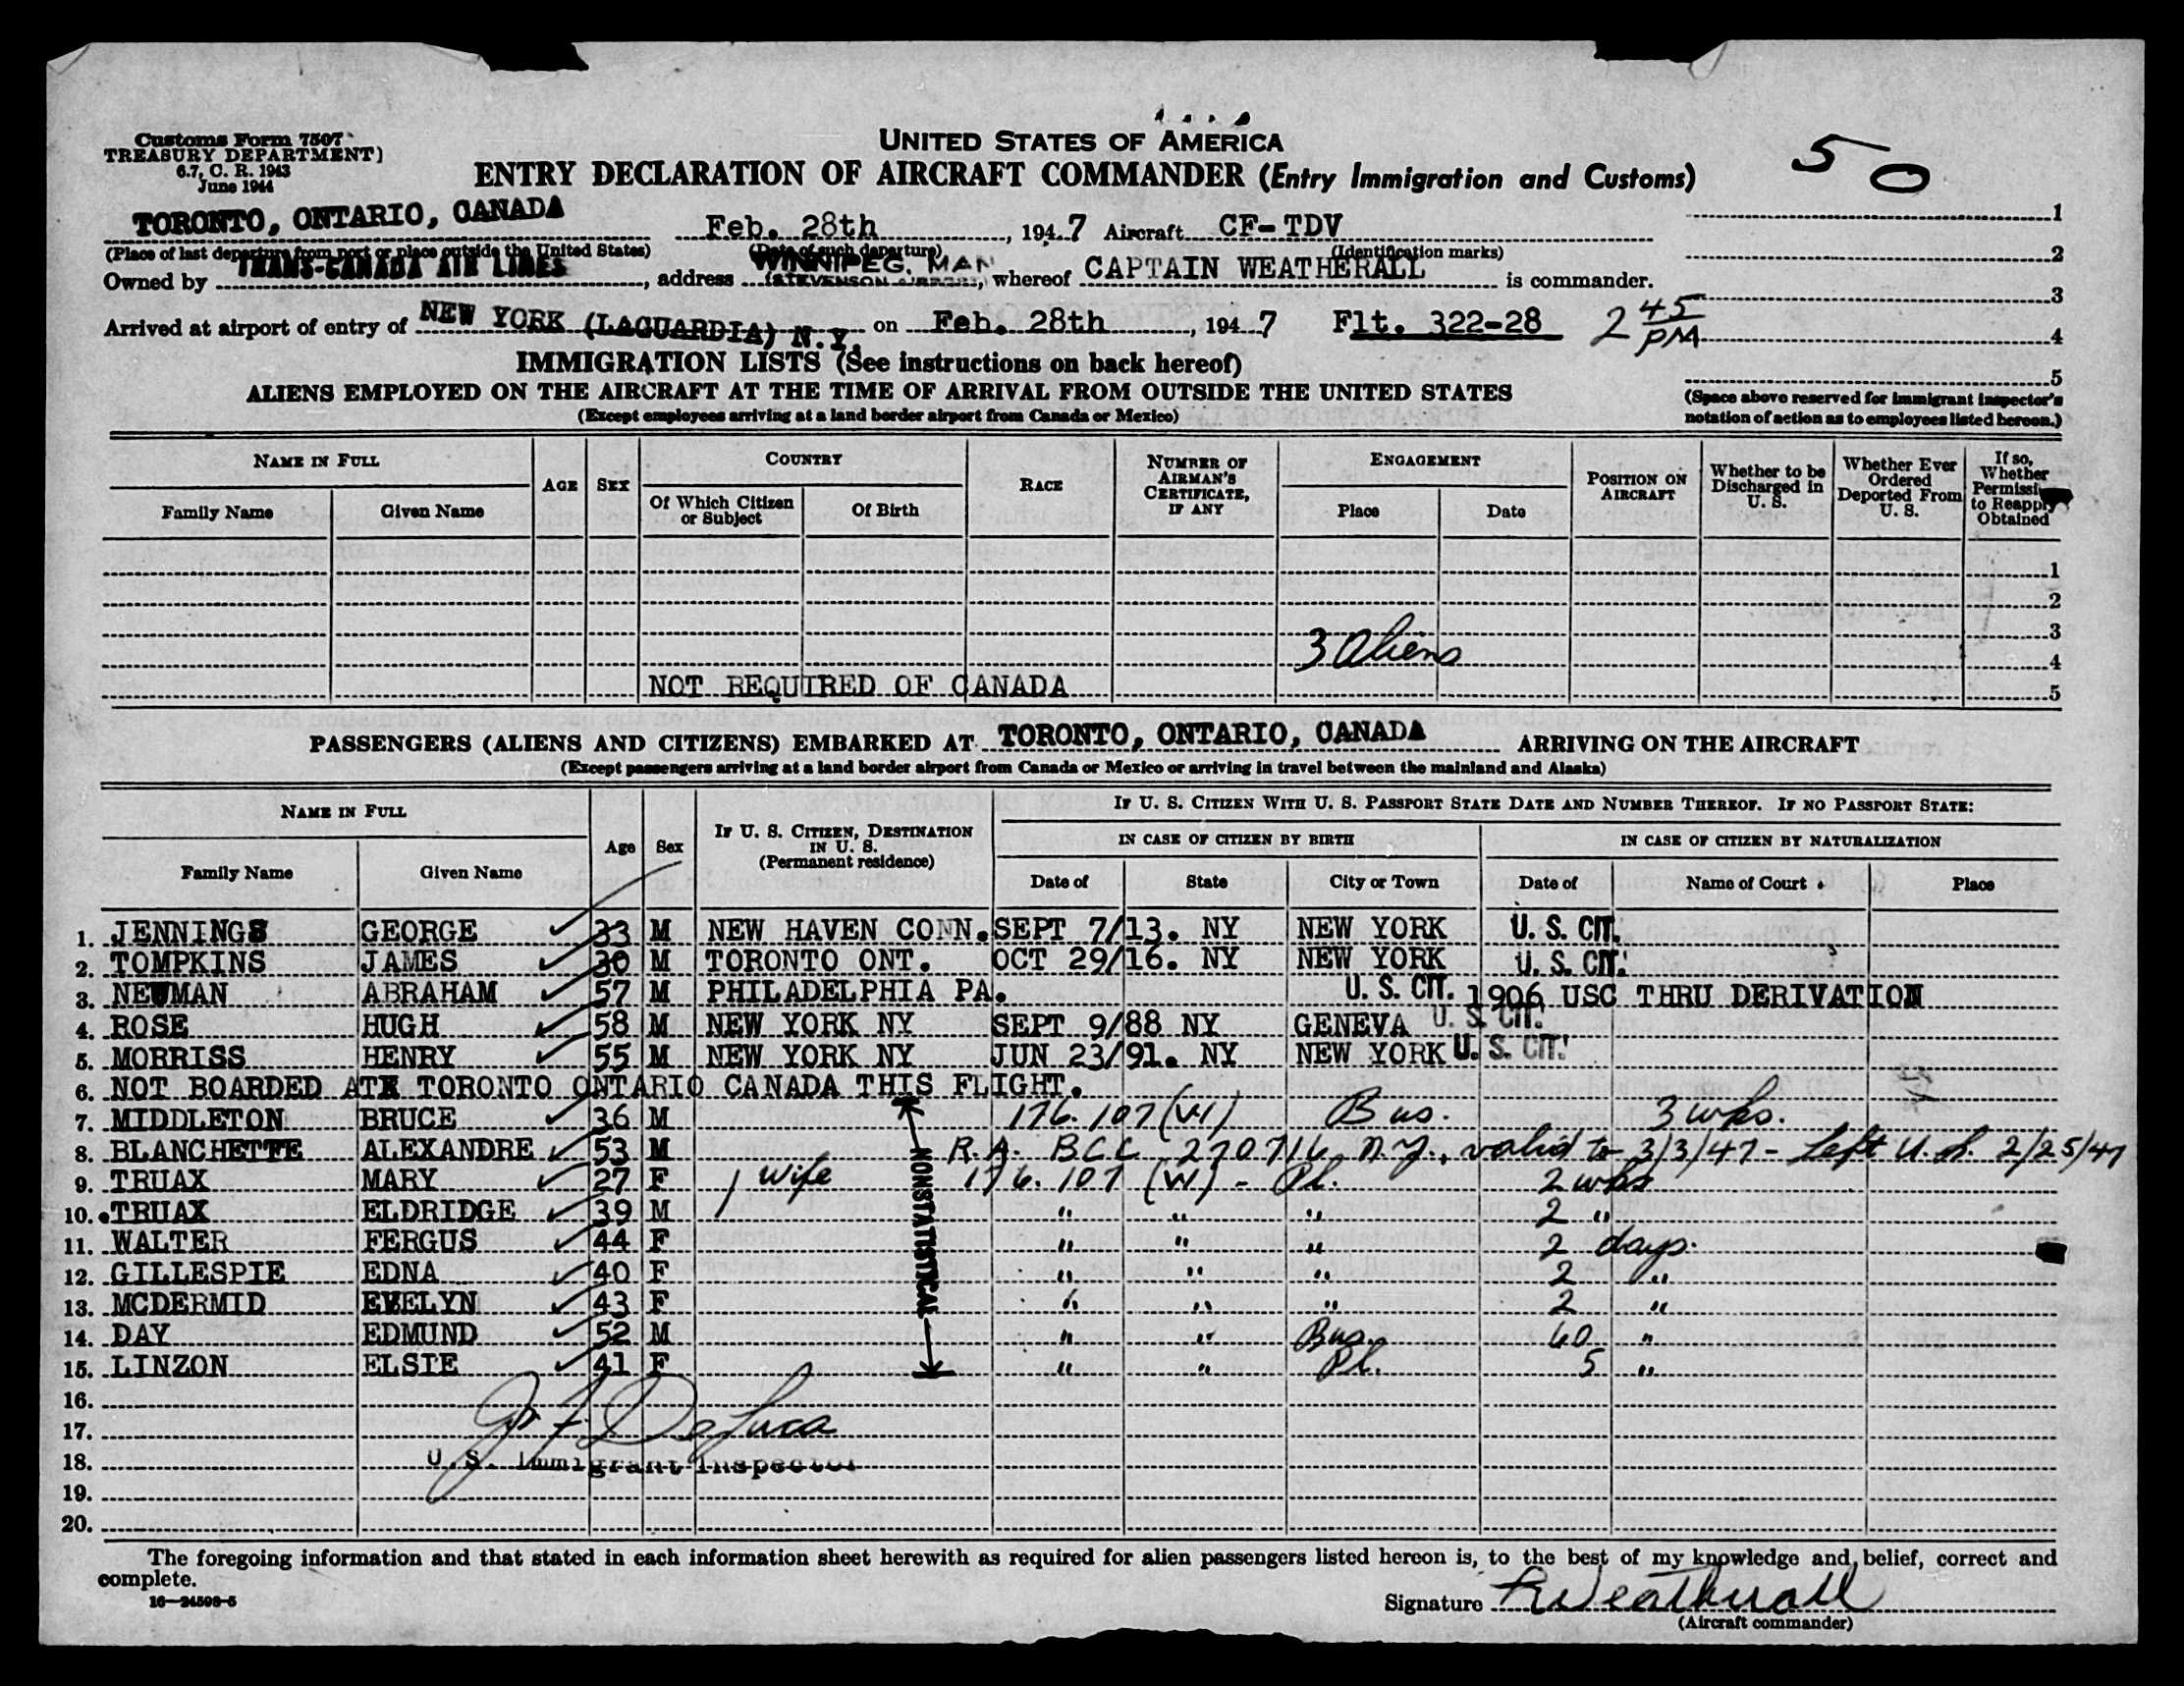 Customs Form 7507
TREASURY DEPARTMENT)
6.7, C. R. 1943
June 1944
UNITED STATES OF AMERICA
ENTRY DECLARATION OF AIRCRAFT COMMANDER (Entry Immigration and Customs)
50
TORONTO, ONTARIO, CANADA Feb. 28th, 1947 Aircraft CF-TDV
(Place of last departure from port or place outside the United States) (Date of such departure) (Identification marks)
Owned by TRANS-CANADA AIR LINES, address WINNIPEG, MAN (STEVENSON, whereof CAPTAIN WEATHERALL is commander.
Arrived at airport of entry of NEW YORK (LAGUARDIA) N.Y. on Feb. 28th, 1947 Flt. 322-28 2 45 PM
1
2
3
4
5
(Space above reserved for immigrant inspector's notation of action as to employees listed hereon.)
IMMIGRATION LISTS (See instructions on back hereof)
ALIENS EMPLOYED ON THE AIRCRAFT AT THE TIME OF ARRIVAL FROM OUTSIDE THE UNITED STATES
(Except employees arriving at a land border airport from Canada or Mexico)
NAME IN FULL AGE SEX COUNTRY RACE NUMBER OF AIRMAN'S CERTIFICATE, IF ANY ENGAGEMENT POSITION ON AIRCRAFT Whether to be Discharged in U. S. Whether Ever Ordered Deported From U. S. If so, Whether Permission to Reapply Obtained
Family Name Given Name Of Which Citizen or Subject Of Birth Place Date
1
2
3
3 Aliens 4
NOT REQUIRED OF CANADA 5
PASSENGERS (ALIENS AND CITIZENS) EMBARKED AT TORONTO, ONTARIO, CANADA ARRIVING ON THE AIRCRAFT
(Except passengers arriving at a land border airport from Canada or Mexico or arriving in travel between the mainland and Alaska)
NAME IN FULL Age Sex IF U. S. CITIZEN, DESTINATION IN U. S. (Permanent residence) IF U. S. CITIZEN WITH U. S. PASSPORT STATE DATE AND NUMBER THEREOF. IF NO PASSPORT STATE:
IN CASE OF CITIZEN BY BIRTH IN CASE OF CITIZEN BY NATURALIZATION
Family Name Given Name Date of State City or Town Date of Name of Court Place
1. JENNINGS GEORGE 33 M NEW HAVEN CONN. SEPT 7/13. NY NEW YORK U. S. CIT.
2. TOMPKINS JAMES 30 M TORONTO ONT. OCT 29/16. NY NEW YORK U. S. CIT.
3. NEWMAN ABRAHAM 57 M PHILADELPHIA PA. U. S. CIT. 1906 USC THRU DERIVATION
4. ROSE HUGH 58 M NEW YORK NY SEPT 9/88 NY GENEVA U. S. CIT.
5. MORRISS HENRY 55 M NEW YORK NY JUN 23/91. NY NEW YORK U. S. CIT.
6. NOT BOARDED ATX TORONTO ONTARIO CANADA THIS FLIGHT.
7. MIDDLETON BRUCE 36 M 176.107 (VI) Bus. 3 wks.
8. BLANCHETTE ALEXANDRE 53 M R.A. BCC 270716 N.Y., valid to 3/3/47 - Left U.S. 2/25/47
9. TRUAX MARY 27 F wife 176.107 (VI) - Pl. 2 wks
10. TRUAX ELDRIDGE 39 M " " " 2 "
11. WALTER FERGUS 44 F " " " 2 days.
12. GILLESPIE EDNA 40 F " " " 2 "
13. MCDERMID EVELYN 43 F " " " 2 "
14. DAY EDMUND 52 M " " Bus. 60 "
15. LINZON ELSIE 41 F " " Pl. 5 "
NONSTATISTICAL
16.
17. De Luca
18. U. S. Immigrant Inspector
19.
20.
The foregoing information and that stated in each information sheet herewith as required for alien passengers listed hereon is, to the best of my knowledge and belief, correct and
complete.
16—24598-5
Signature R Weatherall
(Aircraft commander)